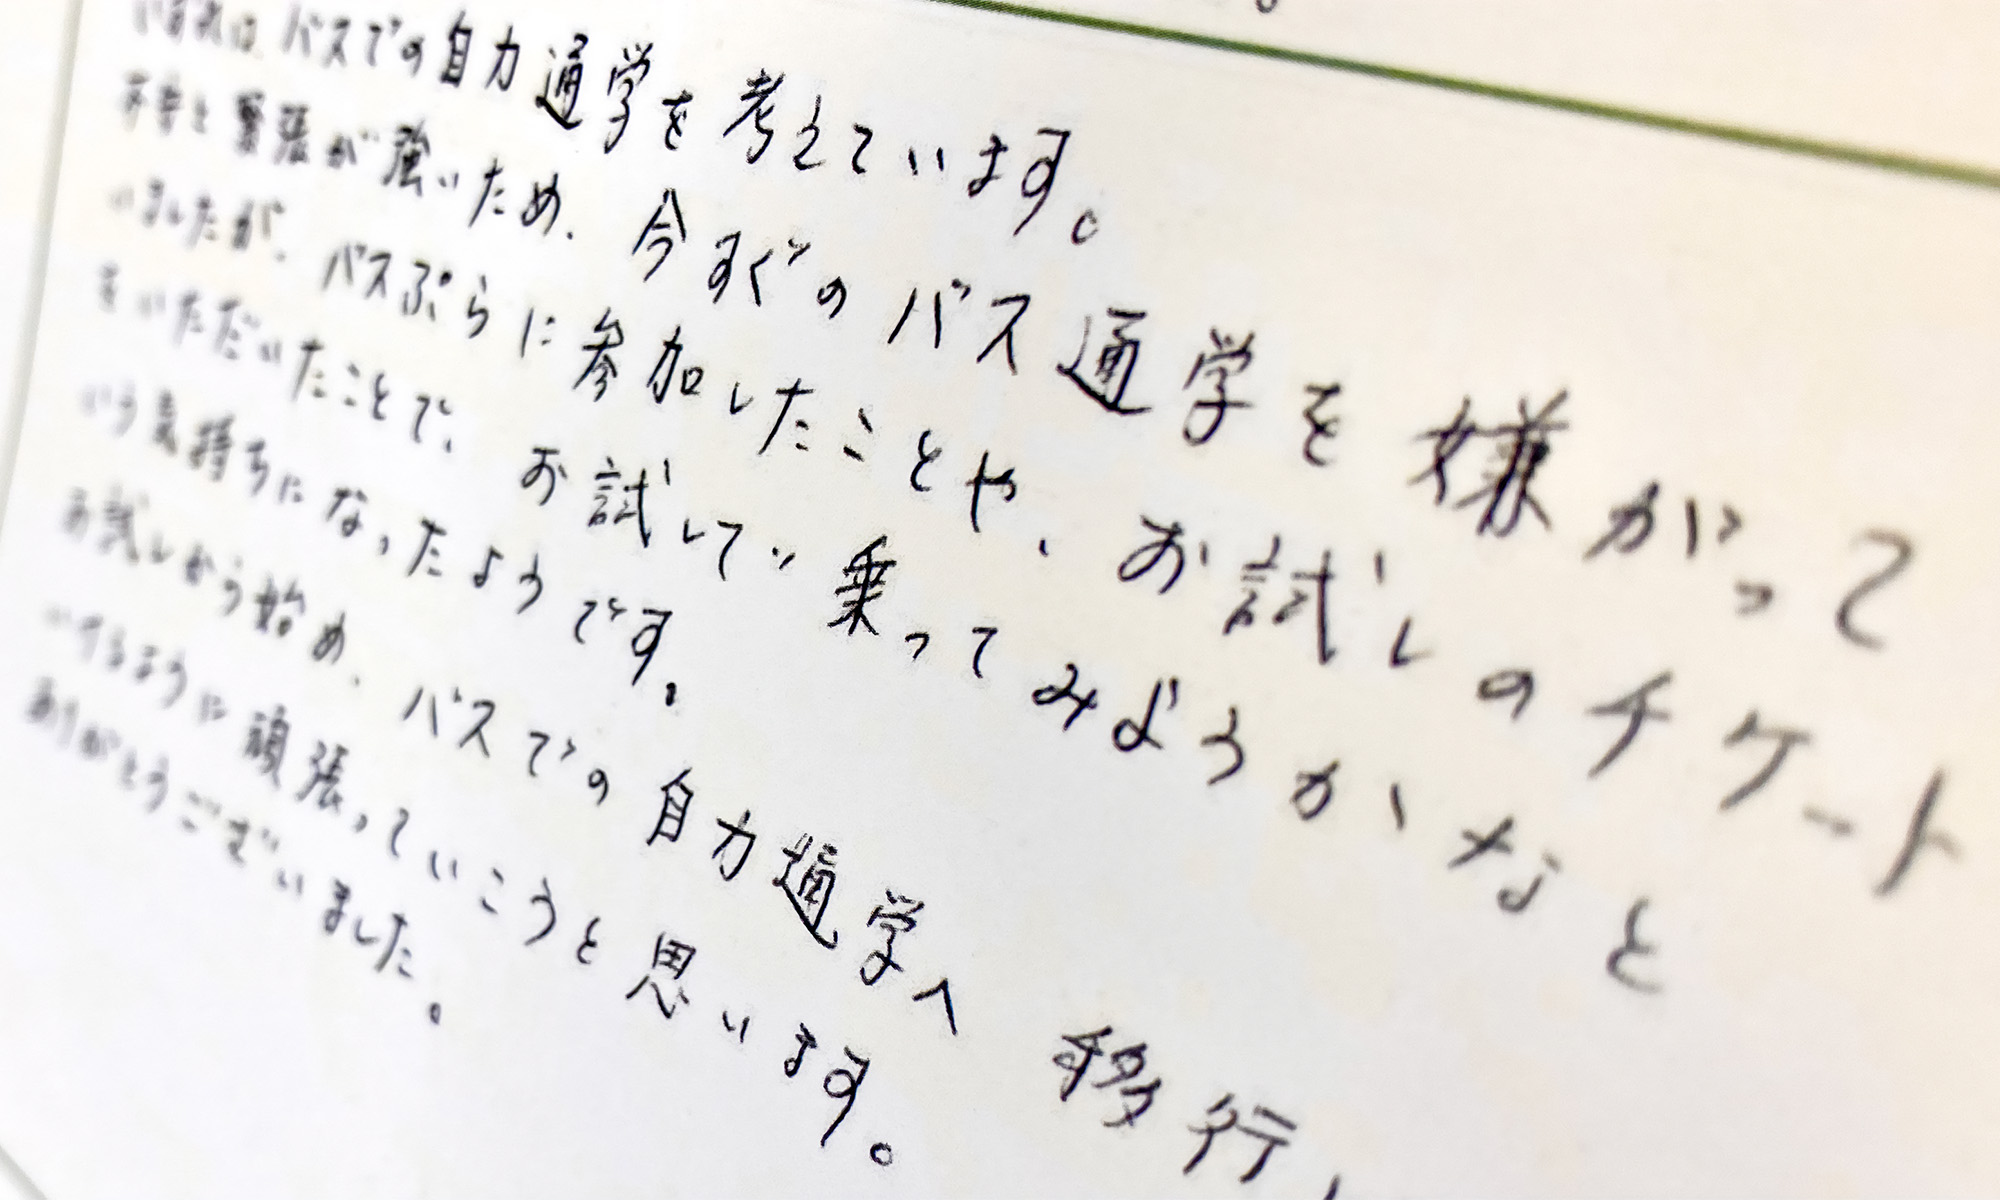 いずれは、バスでの自力通学を考えています。
不安と緊張が強いため、今すぐのバス通学を嫌がって
いましたが、バスぷらに参加したことや、お試しのチケット
をいただいたことで、お試しで乗ってみようかなと
いう気持ちになったようです。
お試しから始め、バスでの自力通学へ移行し
いけるように頑張っていこうと思います。
ありがとうございました。